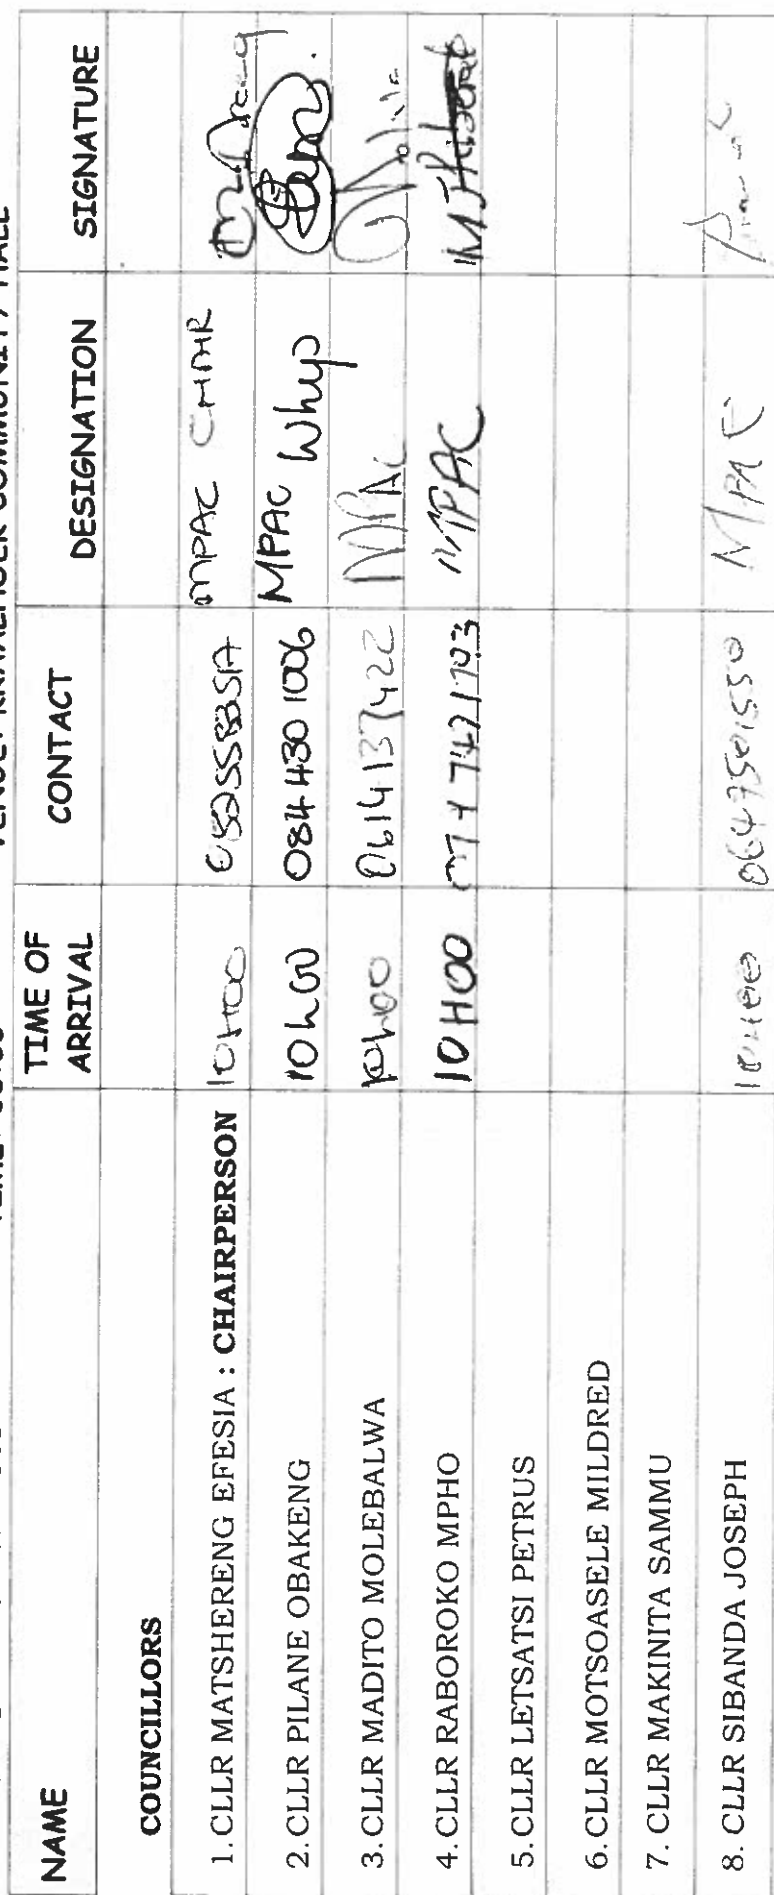 VENUE: KRAALHOEK COMMUNITY HALL
NAME TIME OF ARRIVAL CONTACT DESIGNATION SIGNATURE
COUNCILLORS
1. CLLR MATSHERENG EFESIA : CHAIRPERSON 10H00 MPAC CHAIR
2. CLLR PILANE OBAKENG 10h00 084 430 1006 MPAC Whip
3. CLLR MADITO MOLEBALWA 10h00 0614137422 MPAC
4. CLLR RABOROKO MPHO 10H00 MPAC
5. CLLR LETSATSI PETRUS
6. CLLR MOTSOASELE MILDRED
7. CLLR MAKINITA SAMMU
8. CLLR SIBANDA JOSEPH 10H00 MPAC